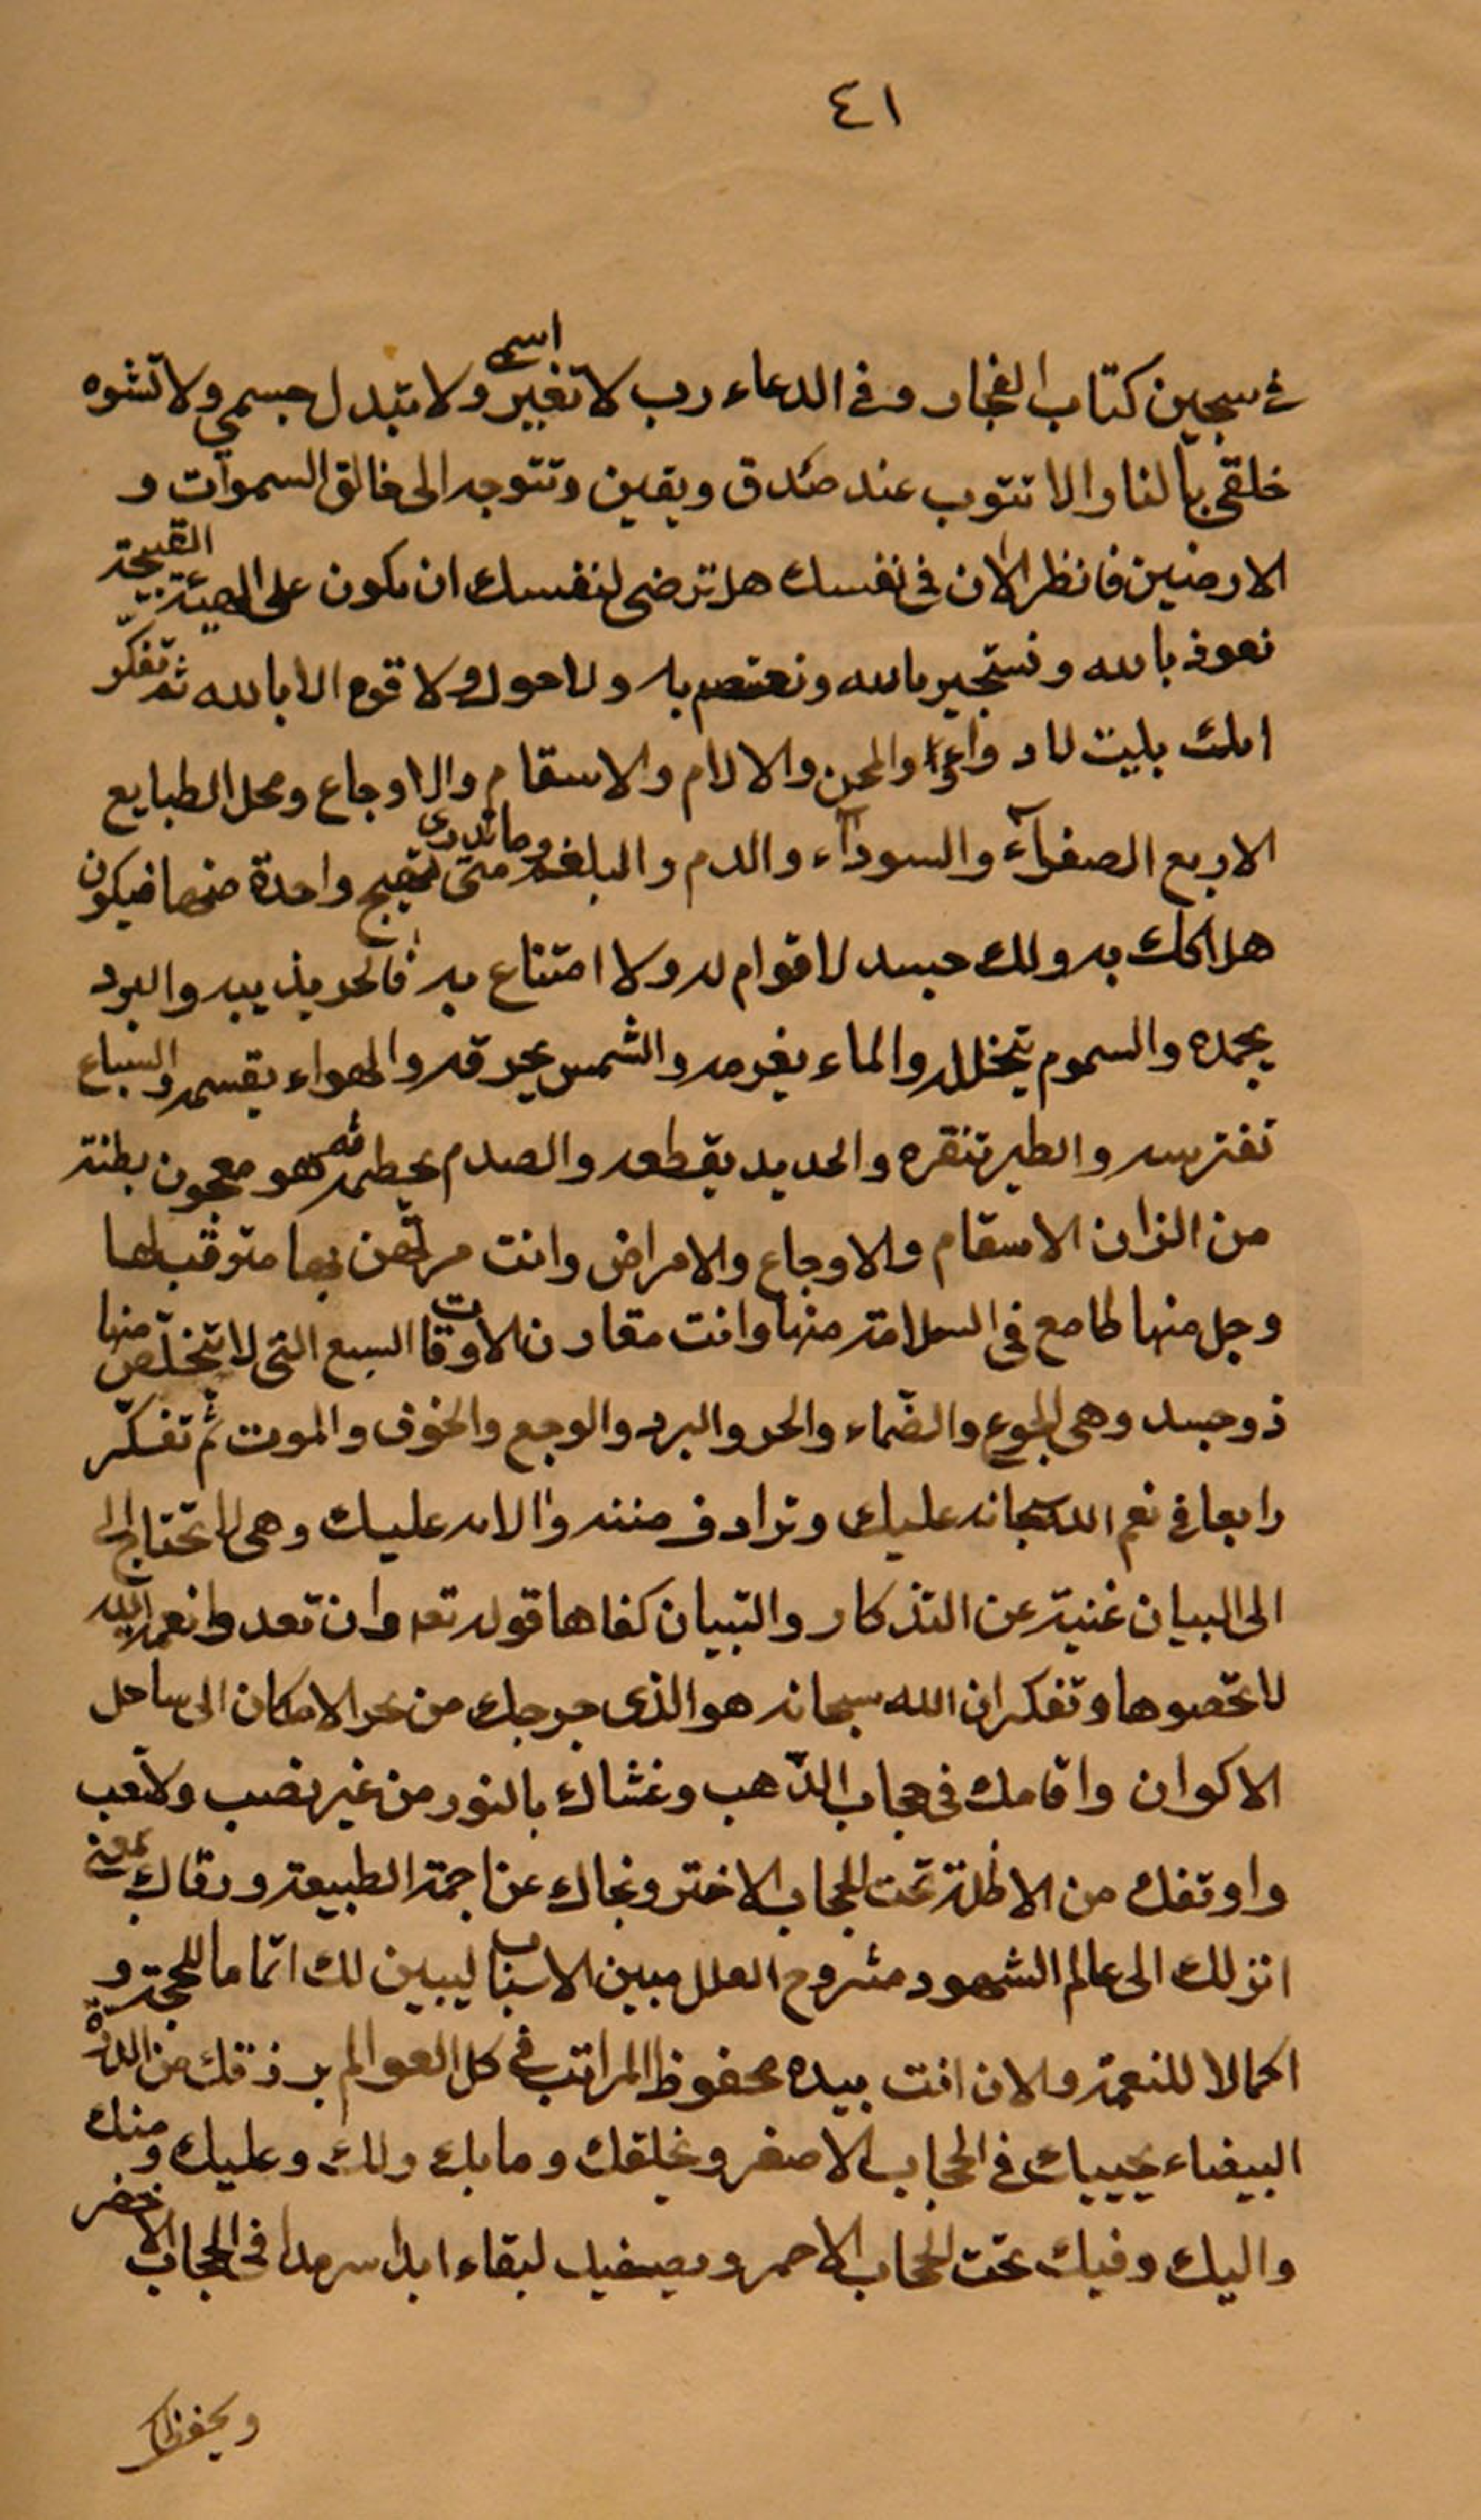 ٤١
في سجين كتاب الفجار وفي الدعاء رب لا تغير اسمي ولا تبدل جسمي ولا تشوه
خلقي بالنار والا تتوب عند صدق ويقين وتتوجه الى خالق السموات و
الارضين فانظر الان في نفسك هل ترضى لنفسك ان تكون على الهيئة القبيحة
نعوذ بالله ونستجير بالله ونعتصم به ولا حول ولا قوة الا بالله ثم تفكر
والمحن والالام والاسقام والاوجاع ومحل الطبايع
الاربع الصفرآء والسودآء والدم والبلغم وما تدرى متى تهيج واحدة منها فيكون
هلاكك به ولك جسد لا قوام له ولا امتناع به فالحر يذيبه والبرد
يجمده والسموم يتخلله والماء يغرمه والشمس يحرقه والهواء يقسمه والسباع
تفترسه والطير تنقره والحديد يقطعه والصدم يحطمه ثم هو معجون بطنته
من الوان الاسقام والاوجاع والامراض وانت مرتهن بها متوقب لها
وجل منها طامع في السلامة منها وانت مقارن الاوقات السبع التي لا يتخلص منها
ذو جسد وهي الجوع والضماء والحر والبرد والوجع والخوف والموت ثم تفكر
رابعا في نعم الله سبحانه عليك وترادف مننه والائه عليك وهي لا تحتاج الى
الى البيان غنية عن التذكار والتبيان كفاها قوله تعه وان تعدوا نعمة الله
لا تحصوها وتفكر ان الله سبحانه هو الذي من بحر الامكان الى ساحل
الاكوان واقامك في حجاب الذهب وغشاك بالنور من غير نصب ولا تعب
واوقفك من الاظلة تحت الحجاب الاخضر ونجاك عن اجمة الطبيعة ورقاك بمعنى
انزلك الى عالم الشهود مشروح العلل مبين الاسباب ليبين لك اتماما للحجة و
اكمالا للنعمة ولان انت بيده محفوظ المراتب في كل العوالم يرزقك من الدرة
البيضاء يحييك في الحجاب الاصفر ويخلقك وما بك ولك وعليك ومنك
واليك وفيك تحت الحجاب الاحمر لبقاء ابدا سرمدا في الحجاب الاخضر
ويحفظك